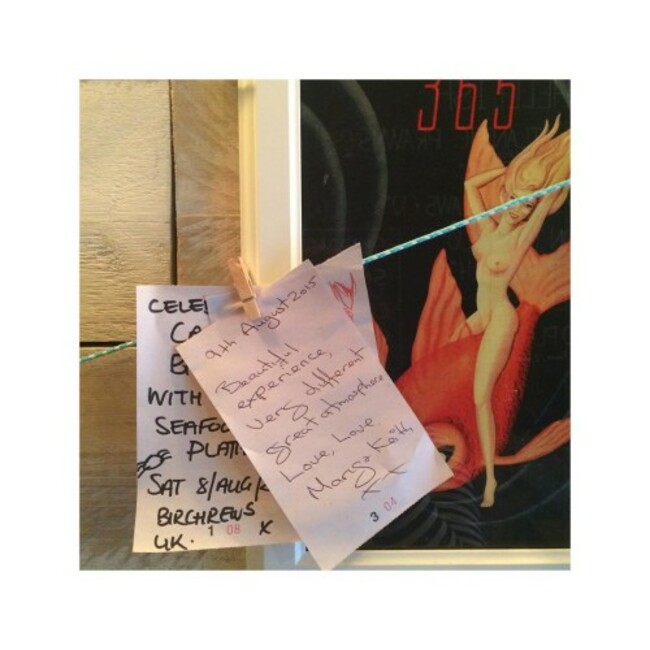 365
CELE
CA
B
WITH
SEAFOO
PLAT
SAT 8/AUG/
BIRCHREWS
UK.
1 08 X
9th August 2015
Beautiful
experience,
very different
great atmosphere
Love, Love.
Marga Keith
X X
3 04